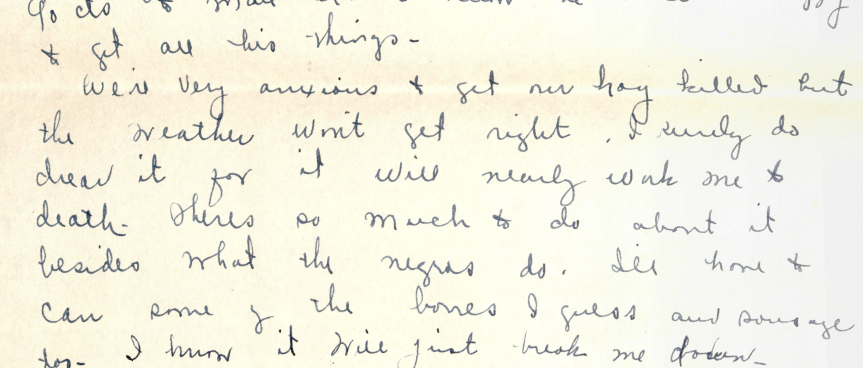 to get all his things -
We're very anxious to get our hog killed but
the weather won't get right. I surely do
dread it for it will nearly work me to
death. Theres so much to do about it
besides what the negros do. I'll have to
can some of the bones I guess and sausage
too - I know it will just break me down -